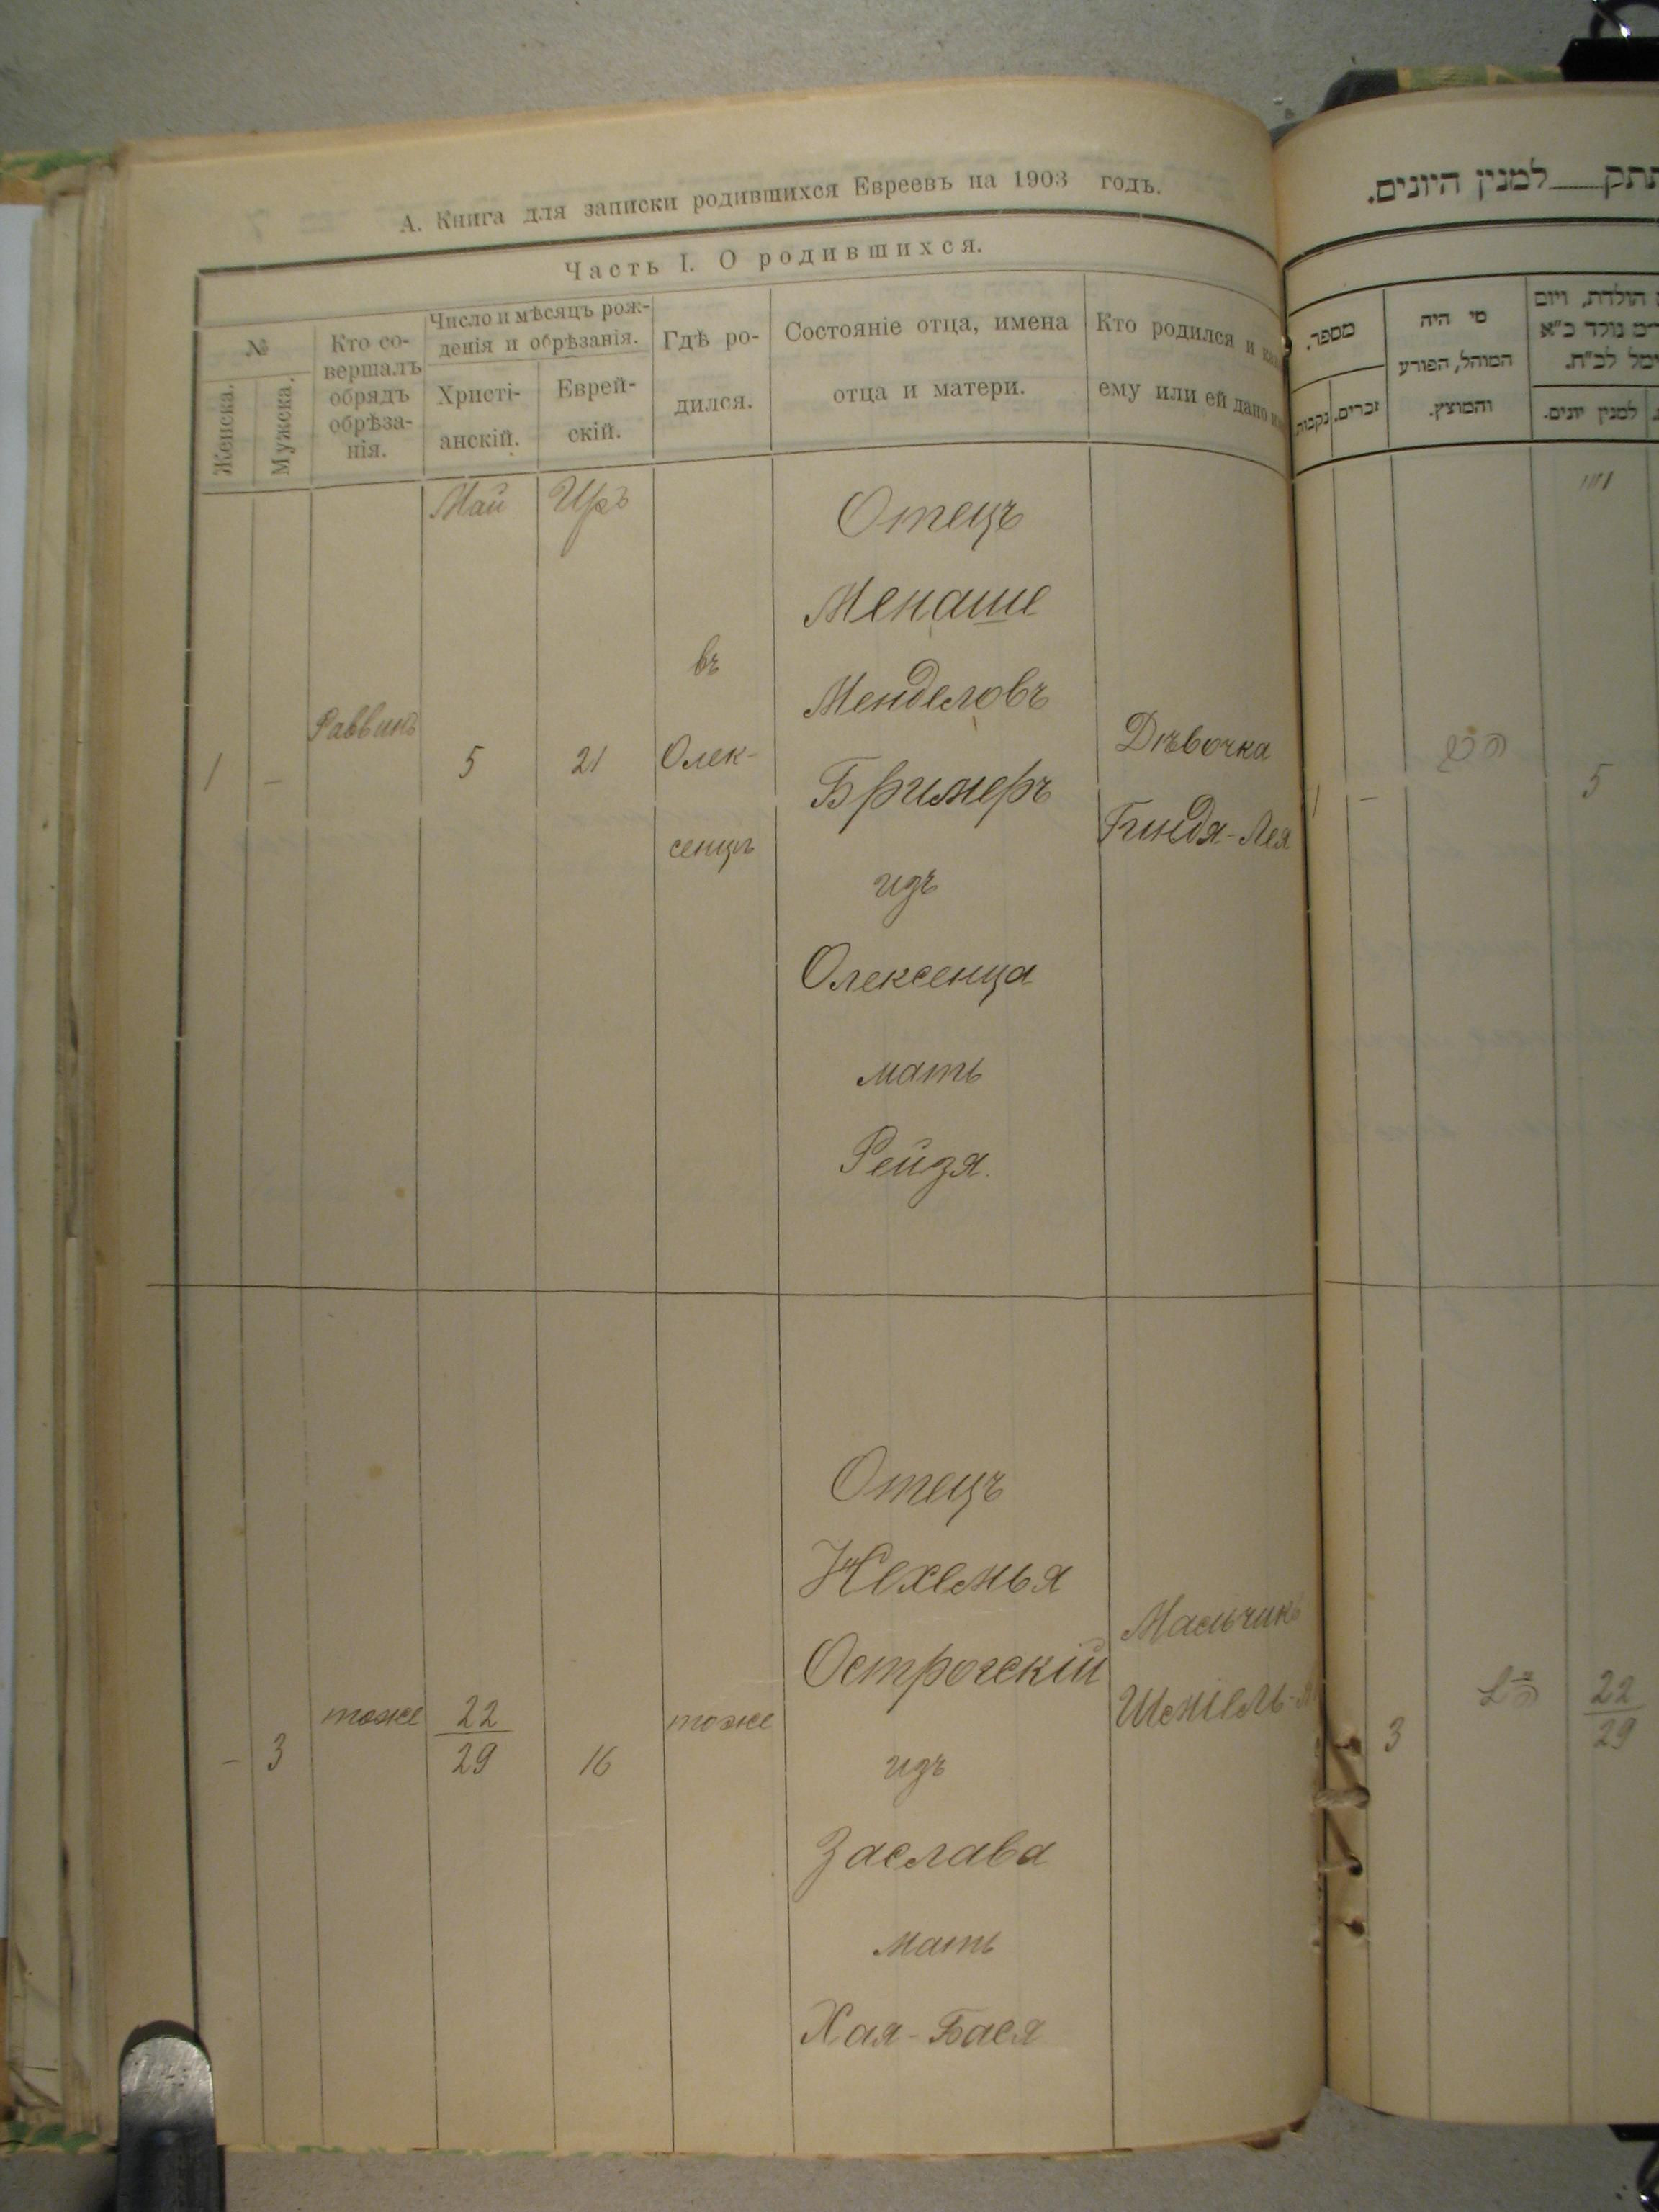 А. Книга для записки родившихся Евреевъ на 1903 годъ.
Часть I. О родившихся.
№
Женска.
Мужска.
Кто со-
вершалъ
обрядъ
обрѣза-
нія.
Число и мѣсяцъ рож-
денія и обрѣзанія.
Христі-
анскій.
Еврей-
скій.
Гдѣ ро-
дился.
Состояніе отца, имена
отца и матери.
Кто родился и
ему или ей дано
Май
Иръ
1
-
Раввинъ
5
21
въ
Олек-
сенцъ
Отецъ
Менаше
Менделовъ
Бримеръ
изъ
Олексенца
мать
Рейзя.
Дѣвочка
Гиндя-Лея
-
3
тоже
22
29
16
тоже
Отецъ
Нехемья
Острогскій
изъ
Заслава
мать
Хая-Бася
Мальчикъ
למנין היונים.
מספר.
נקבות.
זכרים.
מי היה
המוהל, הפורע
והמוצץ.
הולדת, ויום
נולד כ"א
לכ"ח.
למנין יונים.
1
-
5
3
22
29